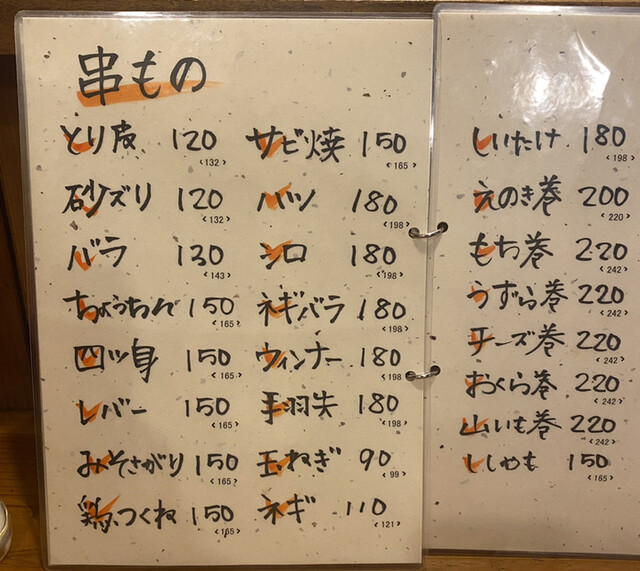 串もの
とり皮 120 <132>
砂ズリ 120 <132>
バラ 130 <143>
ちょうちん 150 <165>
四ツ身 150 <165>
レバー 150 <165>
みそさがり 150 <165>
鶏つくね 150 <165>
サビ焼 150 <165>
ハツ 180 <198>
シロ 180 <198>
ネギバラ 180 <198>
ウィンナー 180 <198
手羽先 180 <198>
玉ねぎ 90 <99>
ネギ 110 <121>
しいたけ 180 <198>
えのき巻 200 <220>
もち巻 220 <242>
うずら巻 220 <242>
チーズ巻 220 <242>
おくら巻 220 <242>
山いも巻 220 <242>
ししゃも 150 <165>